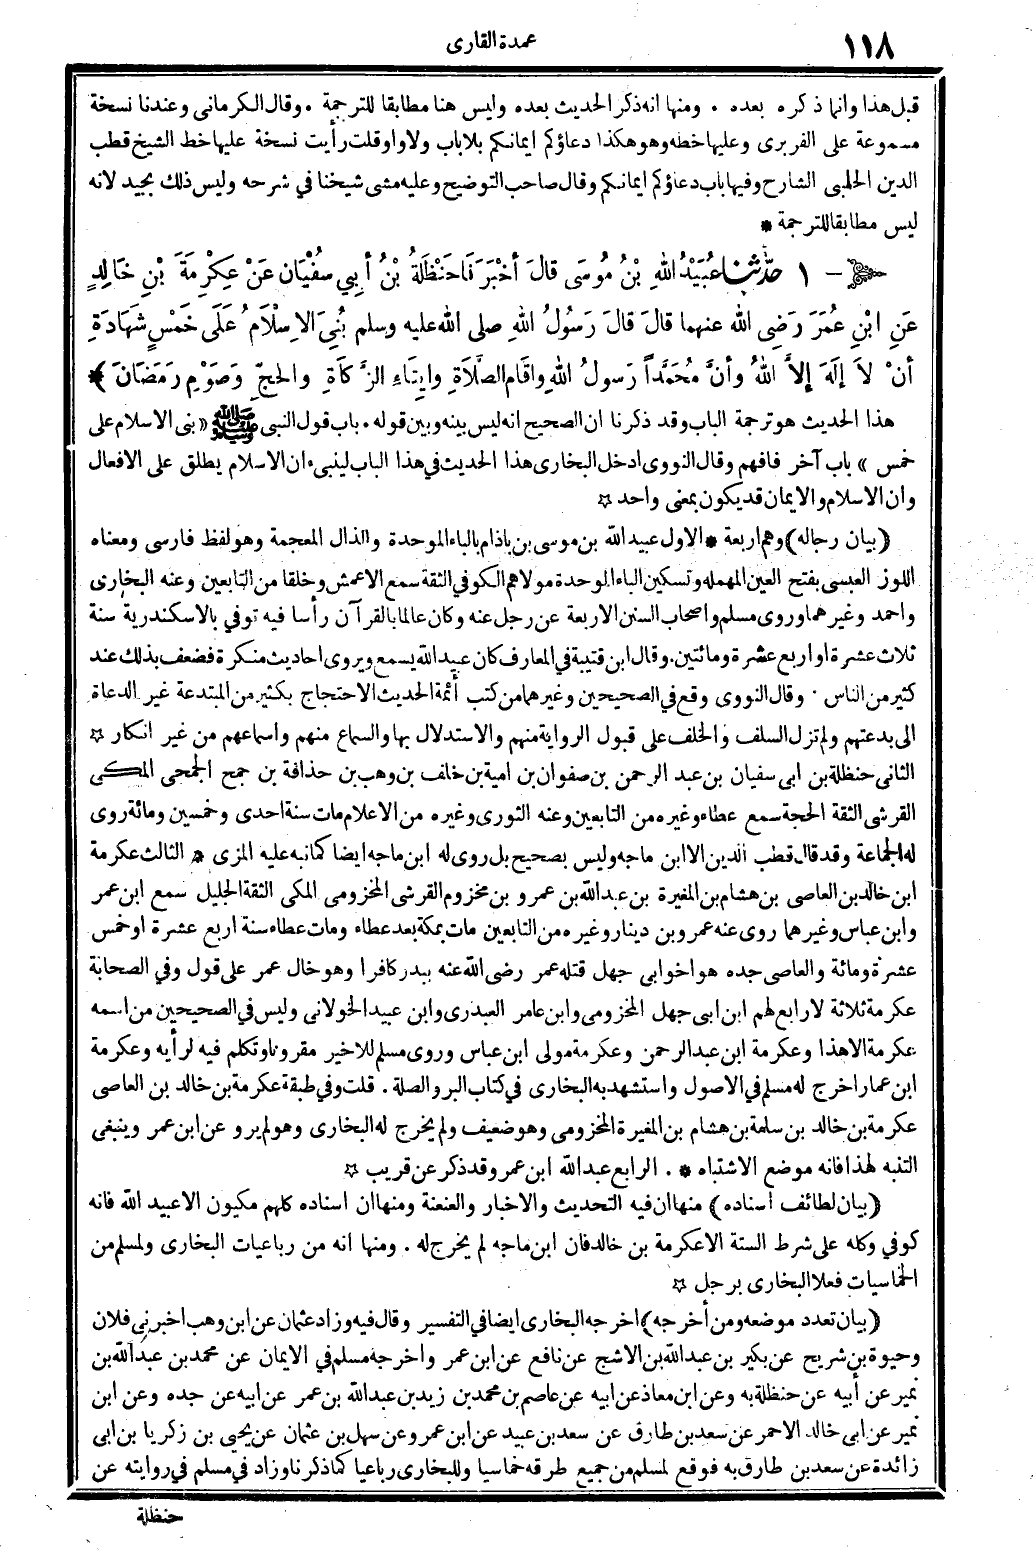 ١١٨
عمدة القارى
قبل هذا وانما ذكره بعده ٠ ومنها انه ذكر الحديث بعده وليس هنا مطابقا للترجمة ٠ وقال الكرمانى وعندنا نسخة
مسموعة على الفربرى وعليها خطه وهو هكذا دعاؤكم ايمانكم بلا باب ولا واو قلت رأيت نسخة عليها خط الشيخ قطب
الدين الحلبى الشارح وفيها باب دعاؤكم ايمانكم وقال صاحب التوضيح وعليه مشى شيخنا في شرحه وليس ذلك بجيد لانه
ليس مطابقا للترجمة *
١ - حدّثنا عُبَيْدُ اللهِ بْنُ مُوسَى قالَ أخْبَرَنَا حَنْظَلَةُ بْنُ أبِي سفْيَانَ عَنْ عِكْرِمَةَ بْنِ خَالِدٍ
عَنِ ابْنِ عُمَرَ رَضِى الله عنهما قالَ قالَ رَسُولُ اللهِ صلى الله عليه وسلم بُنِىَ الاِسْلَامُ عَلَى خَمْسٍ شَهَادَةِ
أنْ لاَ إلَهَ إلاَّ اللهُ وأنَّ مُحَمَّداً رَسولُ اللهِ واقَامِ الصَّلاَةِ وايتَاءِ الزَّكَاةِ والحَجِّ وَصَوْمِ رمَضَانَ ﴾ *
هذا الحديث هو ترجمة الباب وقد ذكرنا ان الصحيح انه ليس بينه وبين قوله ٠ باب قول النبى ﷺ « بنى الاسلام على
خمس » باب آخر فافهم وقال النووى ادخل البخارى هذا الحديث في هذا الباب لينبىء ان الاسلام يطلق على الافعال
وان الاسلام والايمان قد يكون بمعنى واحد ☆
(بيان رجاله) وهم اربعة * الاول عبيد الله بن موسى بن باذام بالباء الموحدة والذال المعجمة وهو لفظ فارسى ومعناه
اللوز العبسى بفتح العين المهملة وتسكين الباء الموحدة مولاهم الكوفي الثقة سمع الاعمش وخلقا من التابعين وعنه البخارى
واحمد وغيرهما وروى مسلم واصحاب السنن الاربعة عن رجل عنه وكان عالما بالقرآن رأسا فيه توفي بالاسكندرية سنة
ثلاث عشرة او اربع عشرة ومائتين. وقال ابن قتيبة في المعارف كان عبيد الله يسمع ويروى احاديث منكرة فضعف بذلك عند
كثير من الناس ٠ وقال النووى وقع في الصحيحين وغيرهما من كتب أئمة الحديث الاحتجاج بكثير من المبتدعة غير الدعاة
الى بدعتهم ولم تزل السلف والخلف على قبول الرواية منهم والاستدلال بها والسماع منهم واسماعهم من غير انكار ☆
الثانى حنظلة بن ابى سفيان بن عبد الرحمن بن صفوان بن امية بن خلف بن وهب بن حذافة بن جمح الجمحى المكى
القرشى الثقة الحجة سمع عطاء وغيره من التابعين وعنه الثورى وغيره من الاعلام مات سنة احدى وخمسين ومائة روى
له الجماعة وقد قال قطب الدين الا ابن ماجه وليس بصحيح بل روى له ابن ماجه ايضا كما نبه عليه المزى * الثالث عكرمة
ابن خالد بن العاصى بن هشام بن المغيرة بن عبد الله بن عمرو بن مخزوم القرشى المخزومى المكى الثقة الجليل سمع ابن عمر
وابن عباس وغيرهما روى عنه عمرو بن دينار وغيره من التابعين مات بمكة بعد عطاء ومات عطاء سنة اربع عشرة او خمس
عشرة ومائة والعاصى جده هو اخو ابى جهل قتله عمر رضى الله عنه ببدر كافرا وهو خال عمر على قول وفي الصحابة
عكرمة ثلاثة لا رابع لهم ابن ابى جهل المخزومى وابن عامر العبدرى وابن عبيد الخولانى وليس في الصحيحين من اسمه
عكرمة الا هذا وعكرمة ابن عبد الرحمن وعكرمة مولى ابن عباس وروى مسلم للاخير مقرونا وتكلم فيه لرأيه وعكرمة
ابن عمار اخرج له مسلم في الاصول واستشهد به البخارى في كتاب البر والصلة . قلت وفي طبقة عكرمة بن خالد بن العاصى
عكرمة بن خالد بن سلمة بن هشام بن المغيرة المخزومى وهو ضعيف ولم يخرج له البخارى وهو لم يرو عن ابن عمر وينبغى
التنبه لهذا فانه موضع الاشتباه * . الرابع عبد الله ابن عمر وقد ذكر عن قريب ☆
(بيان لطائف اسناده) منها ان فيه التحديث والاخبار والعنعنة ومنها ان اسناده كلهم مكيون الا عبيد الله فانه
كوفي وكله على شرط الستة الا عكرمة بن خالد فان ابن ماجه لم يخرج له . ومنها انه من رباعيات البخارى ولمسلم من
الخماسيات فعلا البخارى برجل ☆
(بيان تعدد موضعه ومن أخرجه) اخرجه البخارى ايضا في التفسير وقال فيه وزاد عثمان عن ابن وهب اخبرنى فلان
وحيوة بن شريح عن بكير بن عبد الله بن الاشج عن نافع عن ابن عمر واخرجه مسلم في الايمان عن محمد بن عبد الله بن
نمير عن أبيه عن حنظلة به وعن ابن معاذ عن ابيه عن عاصم بن محمد بن زيد بن عبد الله بن عمر عن ابيه عن جده وعن ابن
نمير عن ابى خالد الاحمر عن سعد بن طارق عن سعد بن عبيد عن ابن عمر وعن سهل بن عثمان عن يحيى بن زكريا بن ابى
زائدة عن سعد بن طارق به فوقع لمسلم من جميع طرقه خماسيا وللبخارى رباعيا كما ذكرنا وزاد في مسلم في روايته عن
حنظلة